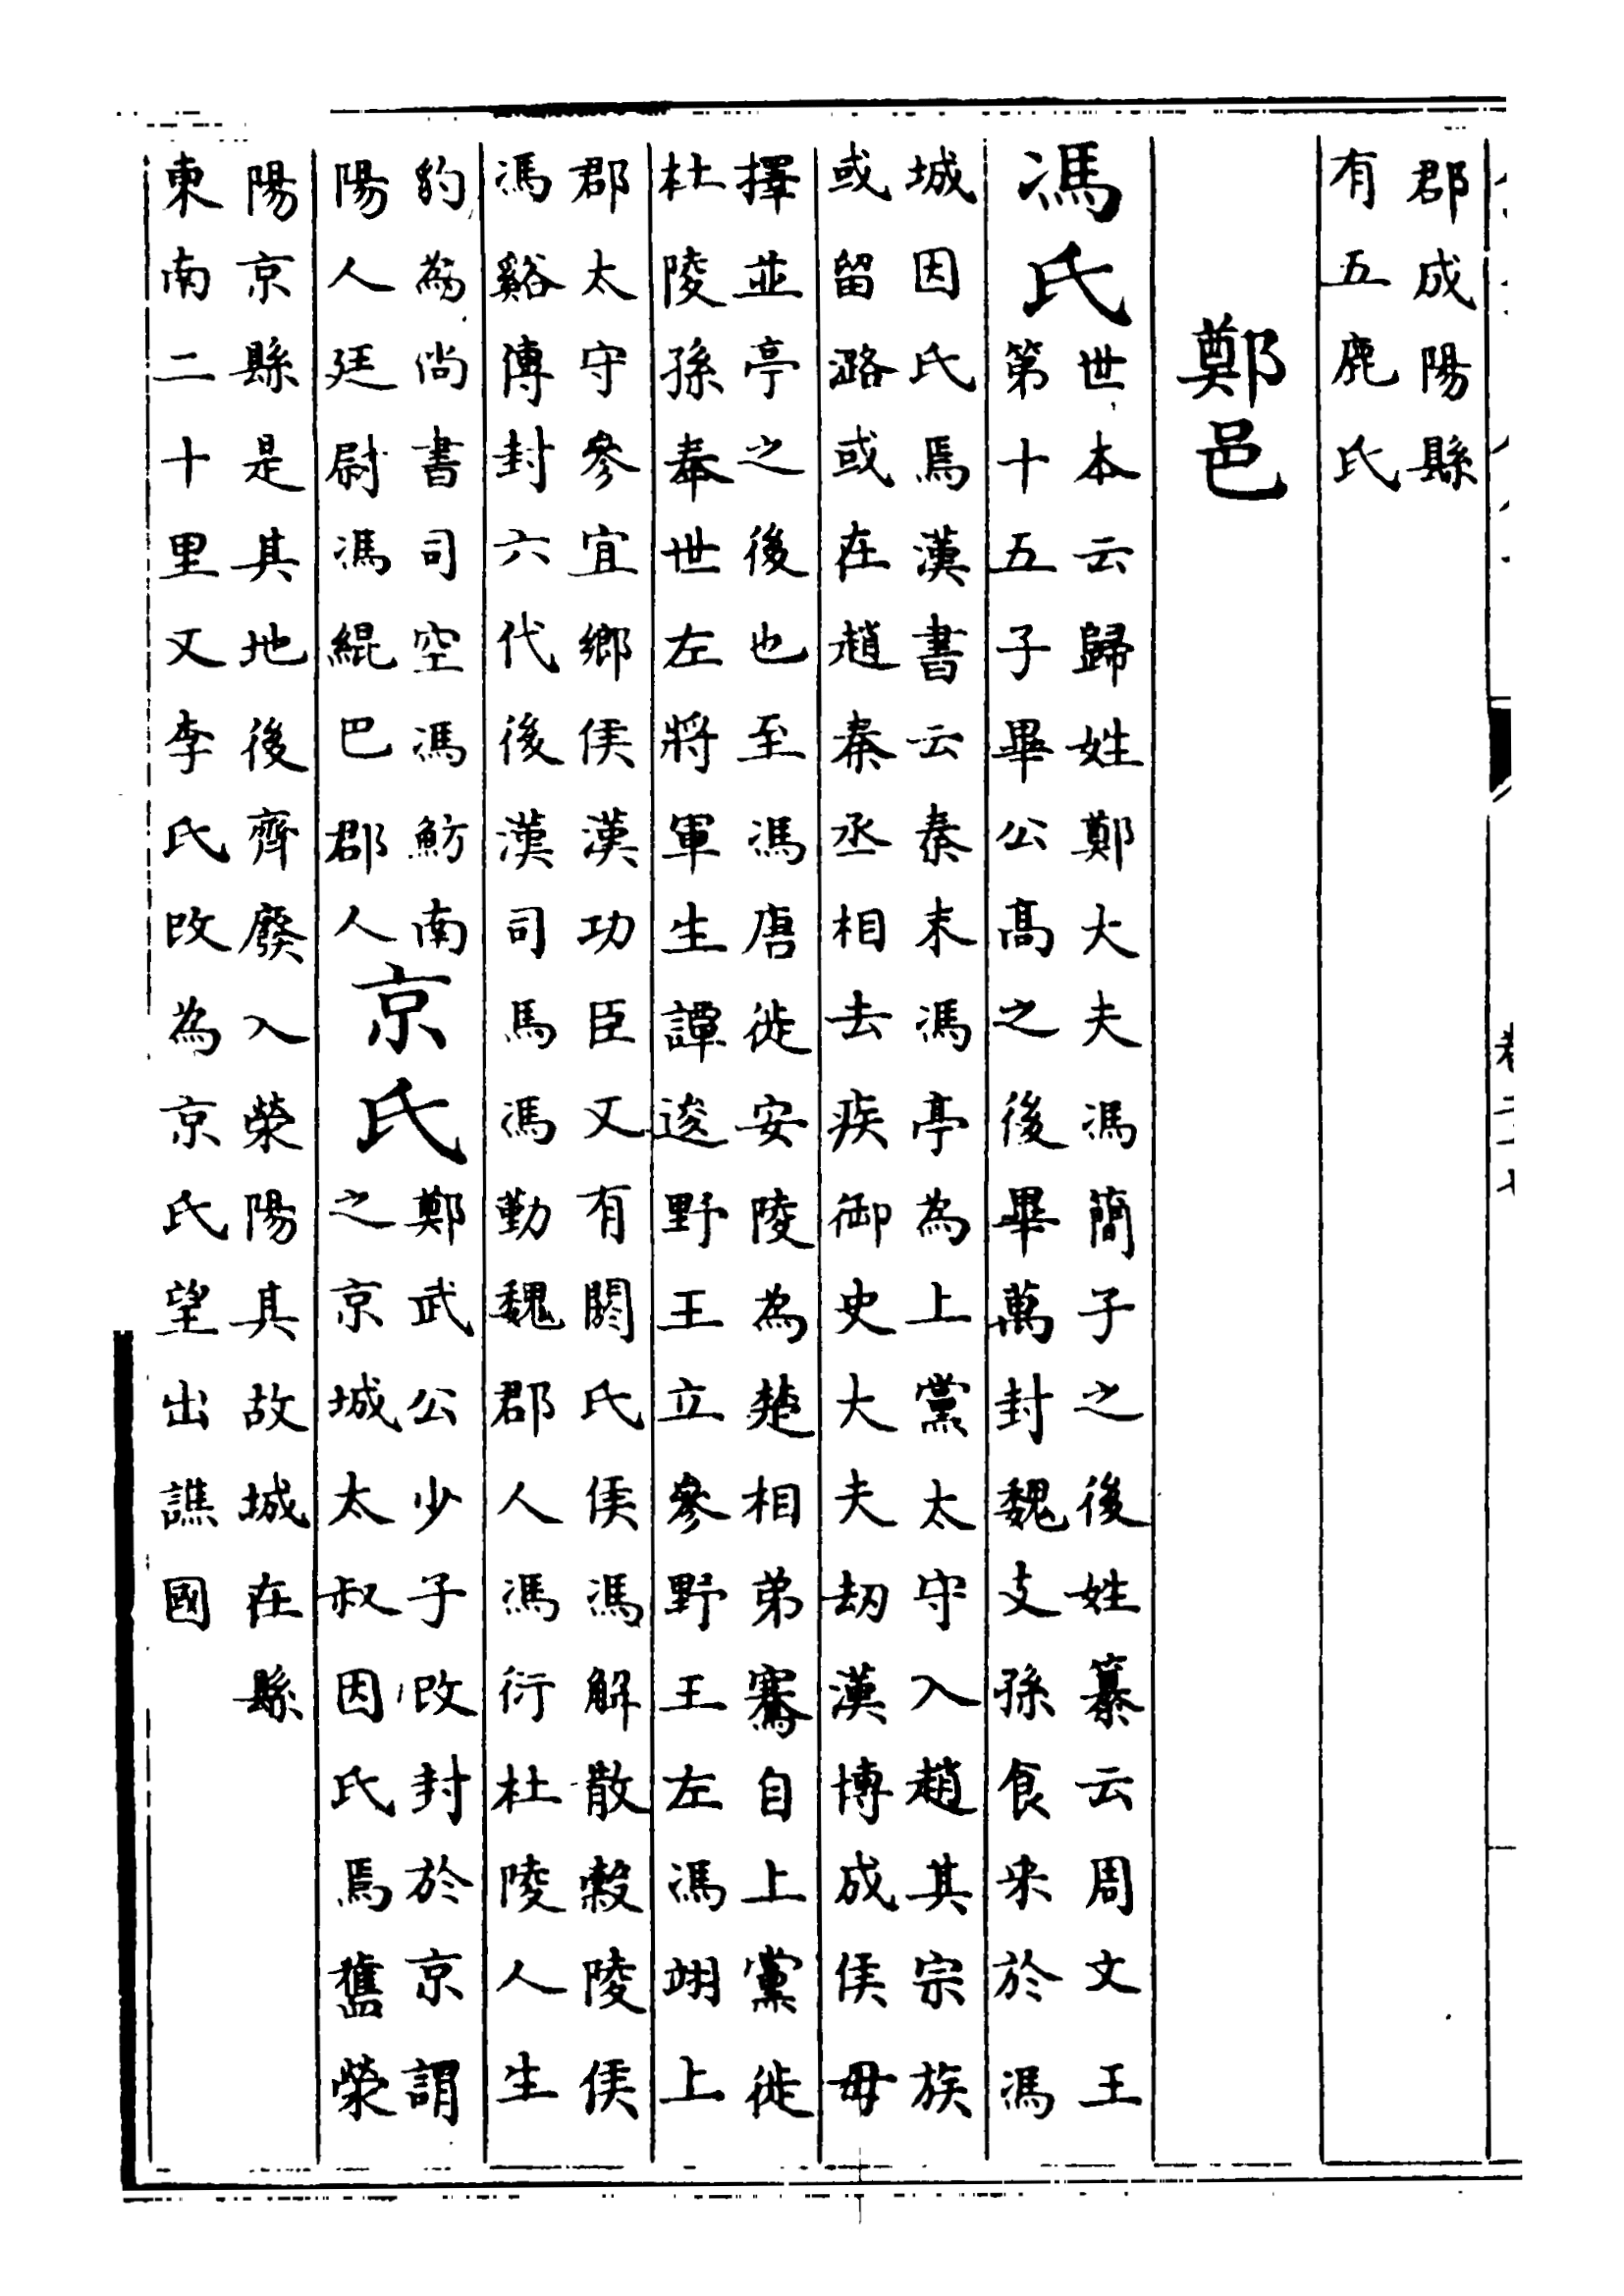 郡成陽縣
有五鹿氏
鄭邑
馮氏
世本云歸姓鄭大夫馮簡子之後姓纂云周文王
第十五子畢公高之後畢萬封魏支孫食采於馮
城因氏焉漢書云秦末馮亭為上黨太守入趙其宗族
或留潞或在趙秦丞相去疾御史大夫劫漢博成侯毋
擇並亭之後也至馮唐徙安陵為楚相弟騫自上黨徙
杜陵孫奉世左將軍生譚逡野王立參野王左馮翊上
郡太守參宜鄉侯漢功臣又有閼氏侯馮解散穀陵侯
馮谿傳封六代後漢司馬馮勤魏郡人馮衍杜陵人生
豹為尚書司空馮魴南
陽人廷尉馮緄巴郡人
京氏
鄭武公少子改封於京謂
之京城太叔因氏焉舊滎
陽京縣是其地後齊廢入滎陽其故城在縣
東南二十里又李氏改為京氏望出譙國